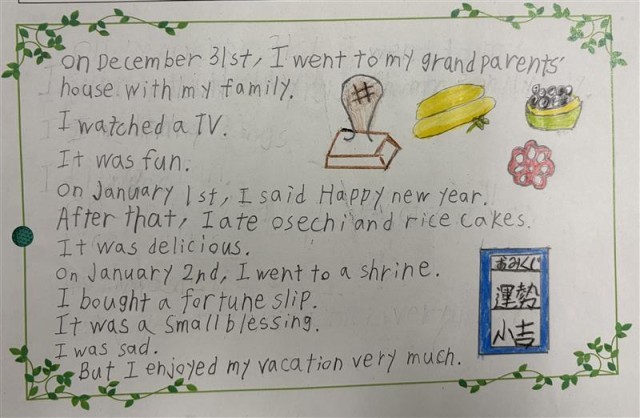 on December 31st, I went to my grandparents'
house with my family.
I watched a TV.
It was fun.
on January 1st, I said Happy new year.
After that, I ate osechi and rice cakes.
It was delicious.
on January 2nd, I went to a shrine.
I bought a fortune slip.
It was a small blessing.
I was sad.
But I enjoyed my vacation very much.
おみくじ
運勢
小吉